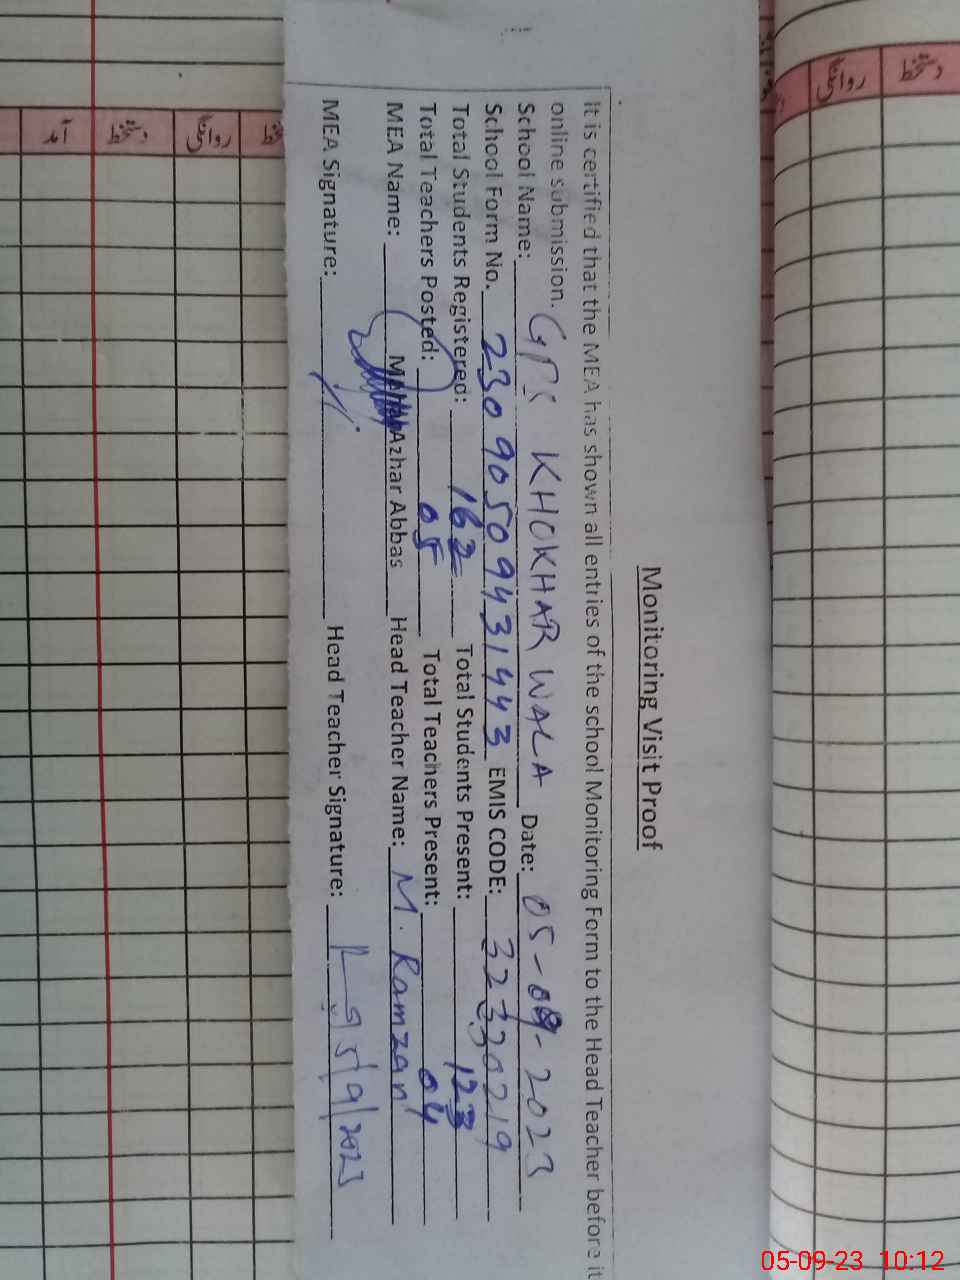 Monitoring Visit Proof
It is certified that the MEA has shown all entries of the school Monitoring Form to the Head Teacher before it
online submission.
School Name: GPS KHOKHAR WALA Date: 05-09-2023
School Form No. 23090509431443 EMIS CODE: 32330219
Total Students Registered: 162 Total Students Present: 123
Total Teachers Posted: 05 Total Teachers Present: 04
MEA Name: Azhar Abbas Head Teacher Name: M. Ramzan
MEA Signature: Head Teacher Signature: 5/9/2023
05-09-23 10:12